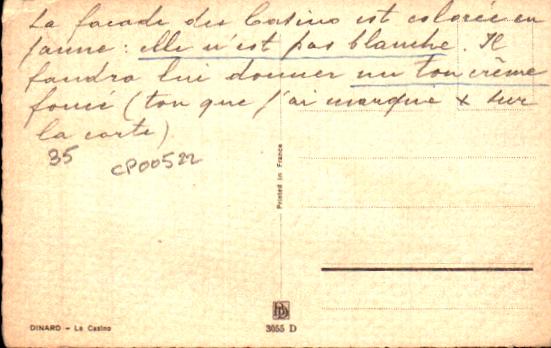 La facade du Casino est colorée en
jaune : elle n'est pas blanche. Il
faudra lui donner un ton crème
foncé (ton que j'ai marqué x sur
la carte)
35
CP00522
Printed in France
DINARD - Le Casino
3055 D